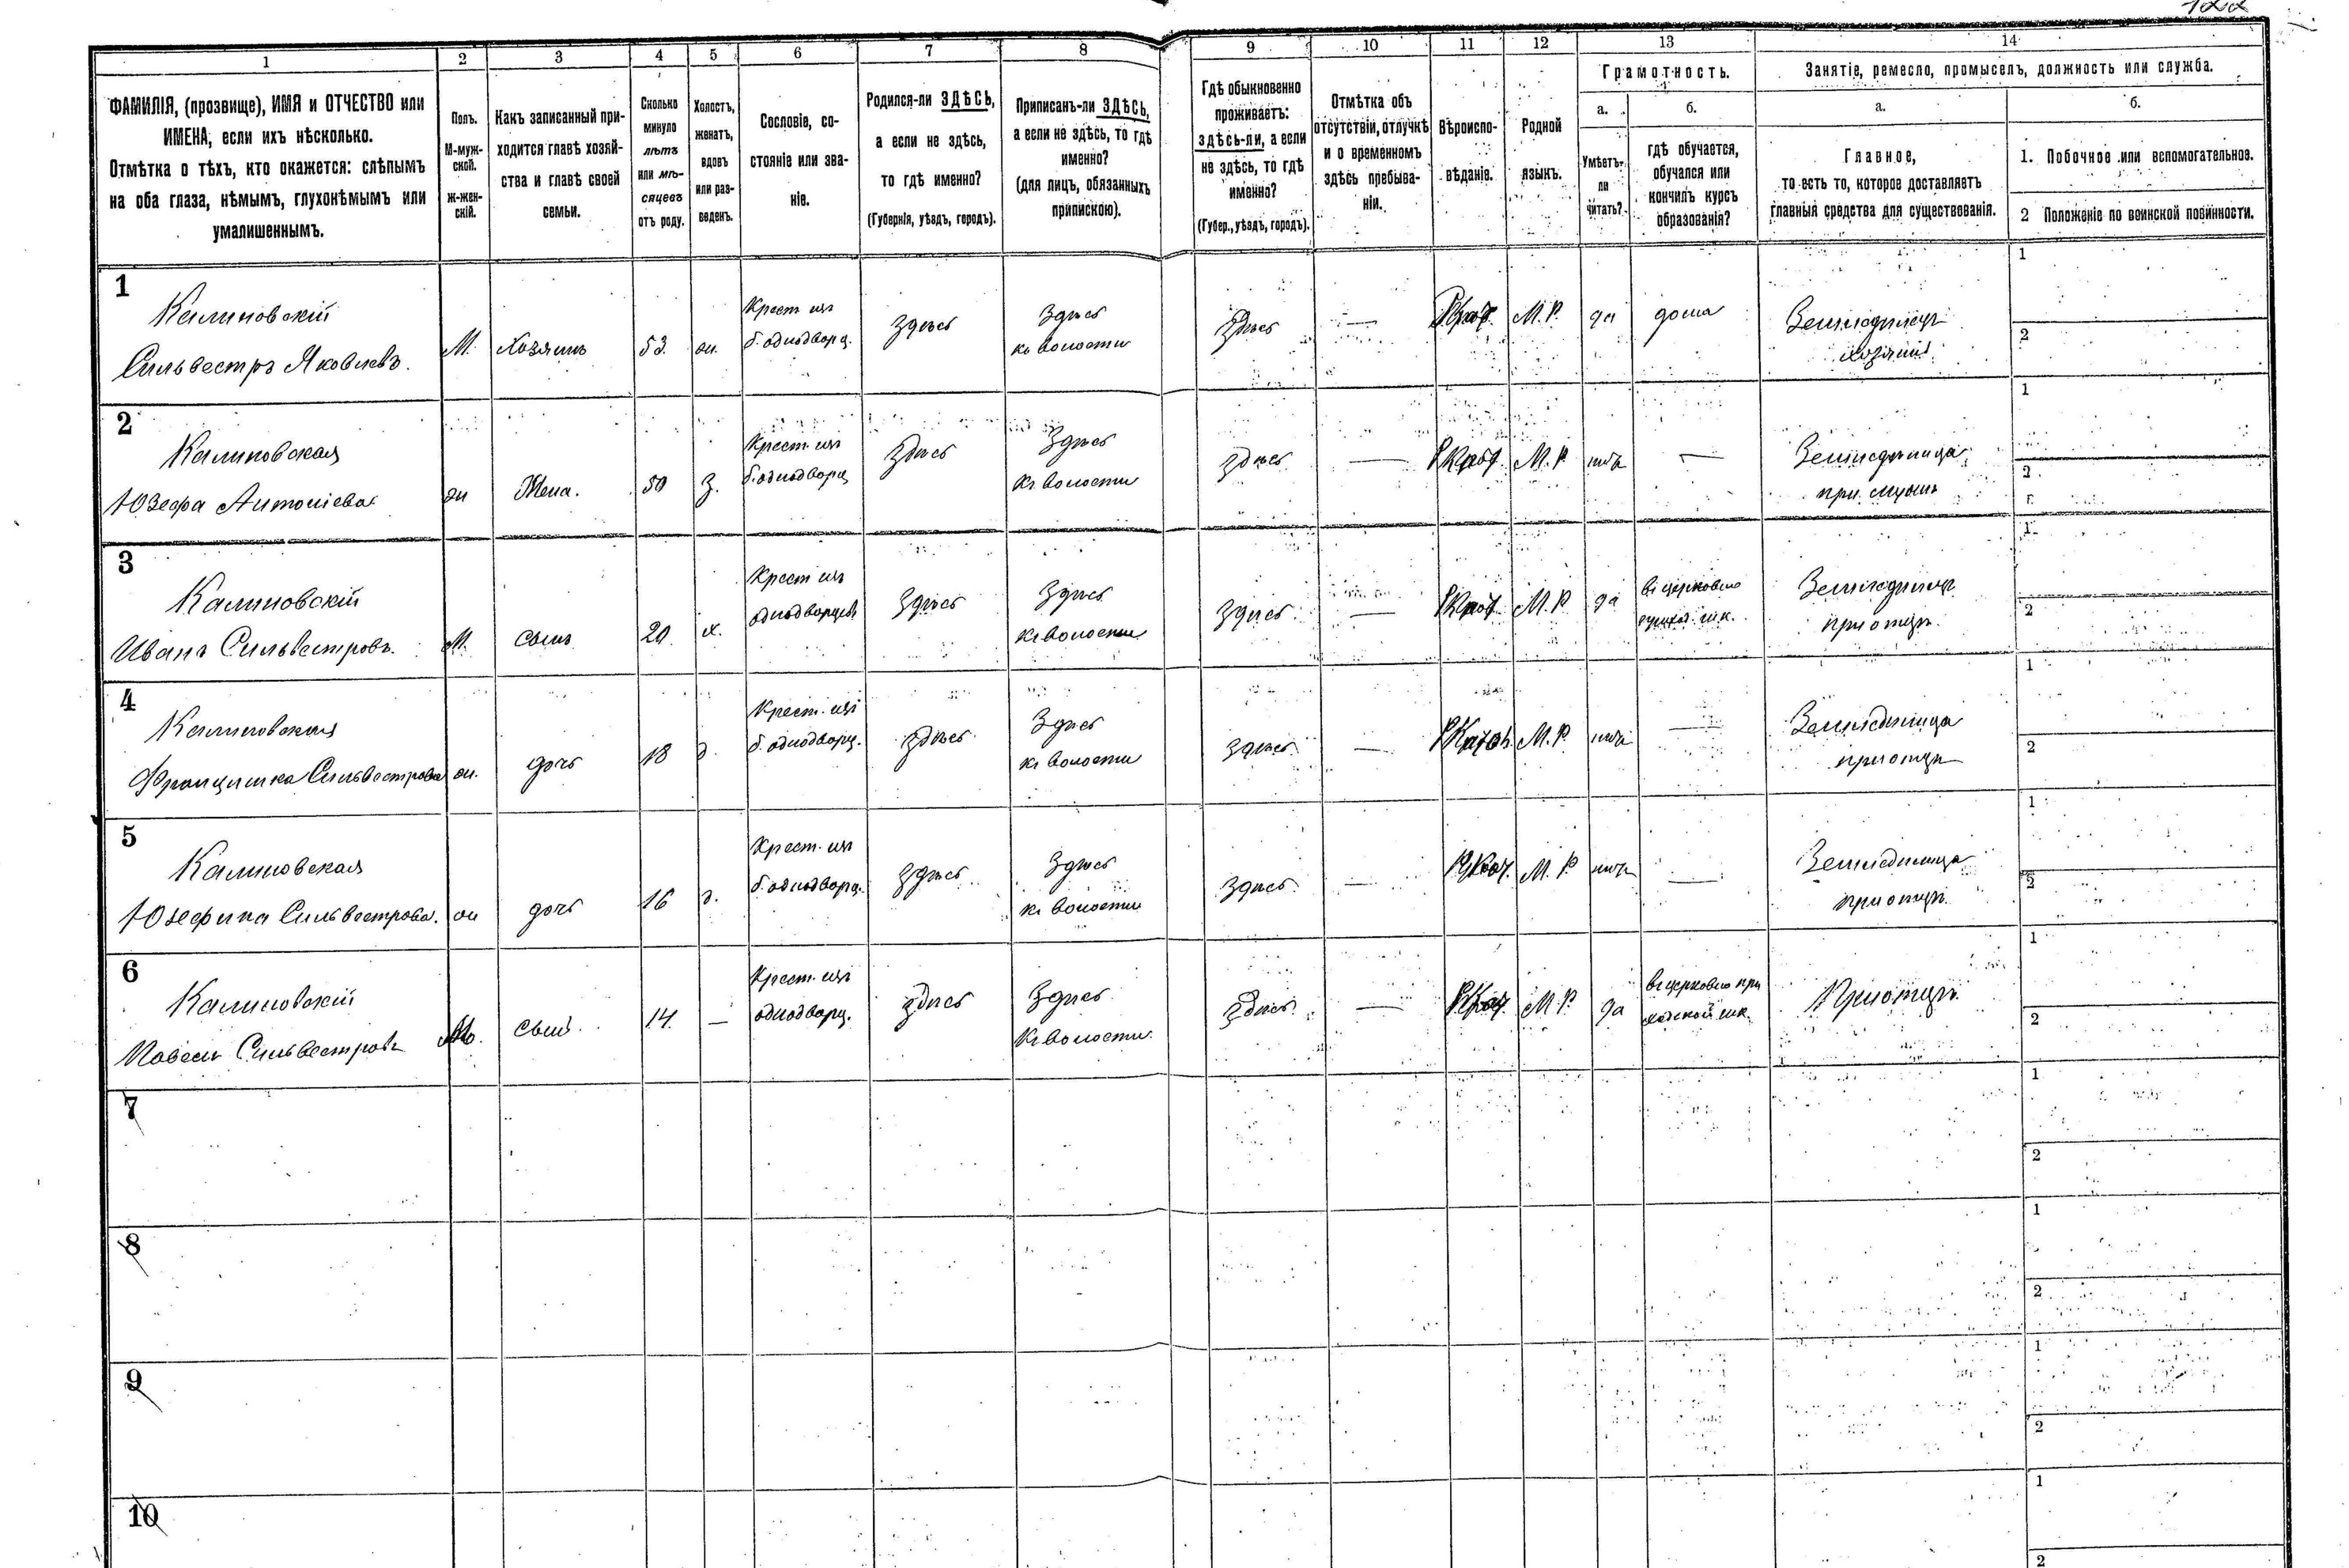 1 2 3 4 5 6 7 8 9 10 11 12 13 14
ФАМИЛІЯ, (прозвище), ИМЯ и ОТЧЕСТВО или
ИМЕНА, если ихъ нѣсколько.
Отмѣтка о тѣхъ, кто окажется: слѣпымъ
на оба глаза, нѣмымъ, глухонѣмымъ или
умалишеннымъ.
Полъ.
М-муж-
ской.
ж-жен-
скій.
Какъ записанный при-
ходится главѣ хозяй-
ства и главѣ своей
семьи.
Сколько
минуло
лѣтъ
или мѣ-
сяцевъ
отъ роду.
Холостъ,
женатъ,
вдовъ
или раз-
веденъ.
Сословіе, со-
стояніе или зва-
ніе.
Родился-ли ЗДѢСЬ,
а если не здѣсь,
то гдѣ именно?
(Губернія, уѣздъ, городъ).
Приписанъ-ли ЗДѢСЬ,
а если не здѣсь, то гдѣ
именно?
(для лицъ, обязанныхъ
припискою).
Гдѣ обыкновенно
проживаетъ:
здѣсь-ли, а если
не здѣсь, то гдѣ
именно?
(Губер., уѣздъ, городъ).
Отмѣтка объ
отсутствіи, отлучкѣ
и о временномъ
здѣсь пребыва-
ніи.
Вѣроиспо-
вѣданіе.
Родной
языкъ.
Грамотность.
а.
Умѣетъ-
ли
читать?
б.
гдѣ обучается,
обучался или
кончилъ курсъ
образованія?
Занятіе, ремесло, промыселъ, должность или служба.
а.
Главное,
то есть то, которое доставляетъ
главныя средства для существованія.
б.
1. Побочное или вспомогательное.
2 Положеніе по воинской повинности.
1
Калиновскій
Сильвестръ Яковлевъ.
М.
Хозяинъ
53.
ж.
Крест. изъ
б. однодворц.
Здѣсь
Здѣсь
къ волости
Здѣсь
—
Р.Кат.
М.Р.
да
дома
Земледѣлецъ
хозяинъ
1
2
2
Калиновская
Юзефа Антоніева
ж
Жена.
50
з.
Крест. изъ
б. однодворц
Здѣсь
Здѣсь
къ волости
Здѣсь
—
Р.Кат.
М.Р.
нѣтъ
—
Земледѣлица
при мужѣ
1
2
3
Калиновскій
Иванъ Сильвестровъ.
М.
сынъ
20
х.
Крест изъ
однодворцевъ
Здѣсь
Здѣсь
къ волости
Здѣсь
—
Р.Кат.
М.Р.
да
въ церковно
приход. шк.
Земледѣлецъ
при отцѣ.
1
2
4
Калиновская
Францишка Сильвестрова
ж.
дочь
18
д.
Крест. изъ
б. однодворц.
Здѣсь
Здѣсь
къ волости
Здѣсь
—
Р.Катол.
М.Р.
нѣтъ
—
Земледѣлица
при отцѣ
1
2
5
Калиновская
Юзефина Сильвестрова.
ж
дочь
16
д.
Крест. изъ
б. однодворц.
Здѣсь
Здѣсь
къ волости
Здѣсь
—
Р.Кат.
М.Р.
нѣтъ
—
Земледѣлица
при отцѣ.
1
2
6
Калиновскій
Павелъ Сильвестровъ
М.
сынъ.
14.
—
Крест. изъ
однодворц.
Здѣсь
Здѣсь
къ волости.
Здѣсь
—
Р.Кат.
М.Р.
да
въ церковно при
ходской шк.
При отцѣ.
1
2
7
1
2
8
1
2
9
1
2
10
1
2